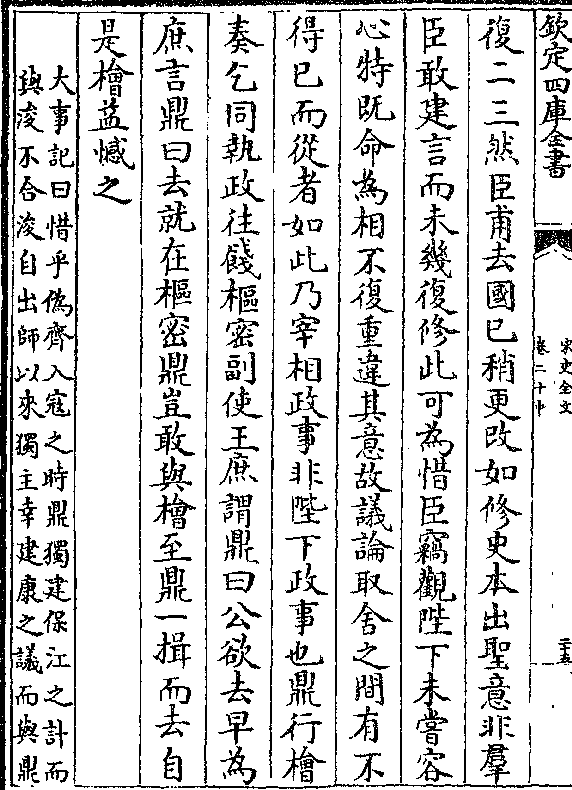 欽定四庫全書
宋史全文
卷二十中
二十五
復二三然臣甫去國已稍更改如修史本出聖意非羣
臣敢建言而未幾復修此可為惜臣竊觀陛下未嘗容
心特既命為相不復重違其意故議論取舍之間有不
得已而從者如此乃宰相政事非陛下政事也鼎行檜
奏乞同執政往餞樞密副使王庶謂鼎曰公欲去早為
庶言鼎曰去就在樞密鼎豈敢與檜至鼎一揖而去自
是檜益憾之
大事記曰惜乎偽齊入寇之時鼎獨建保江之計而
與浚不合浚自出師以來獨主幸建康之議而與鼎